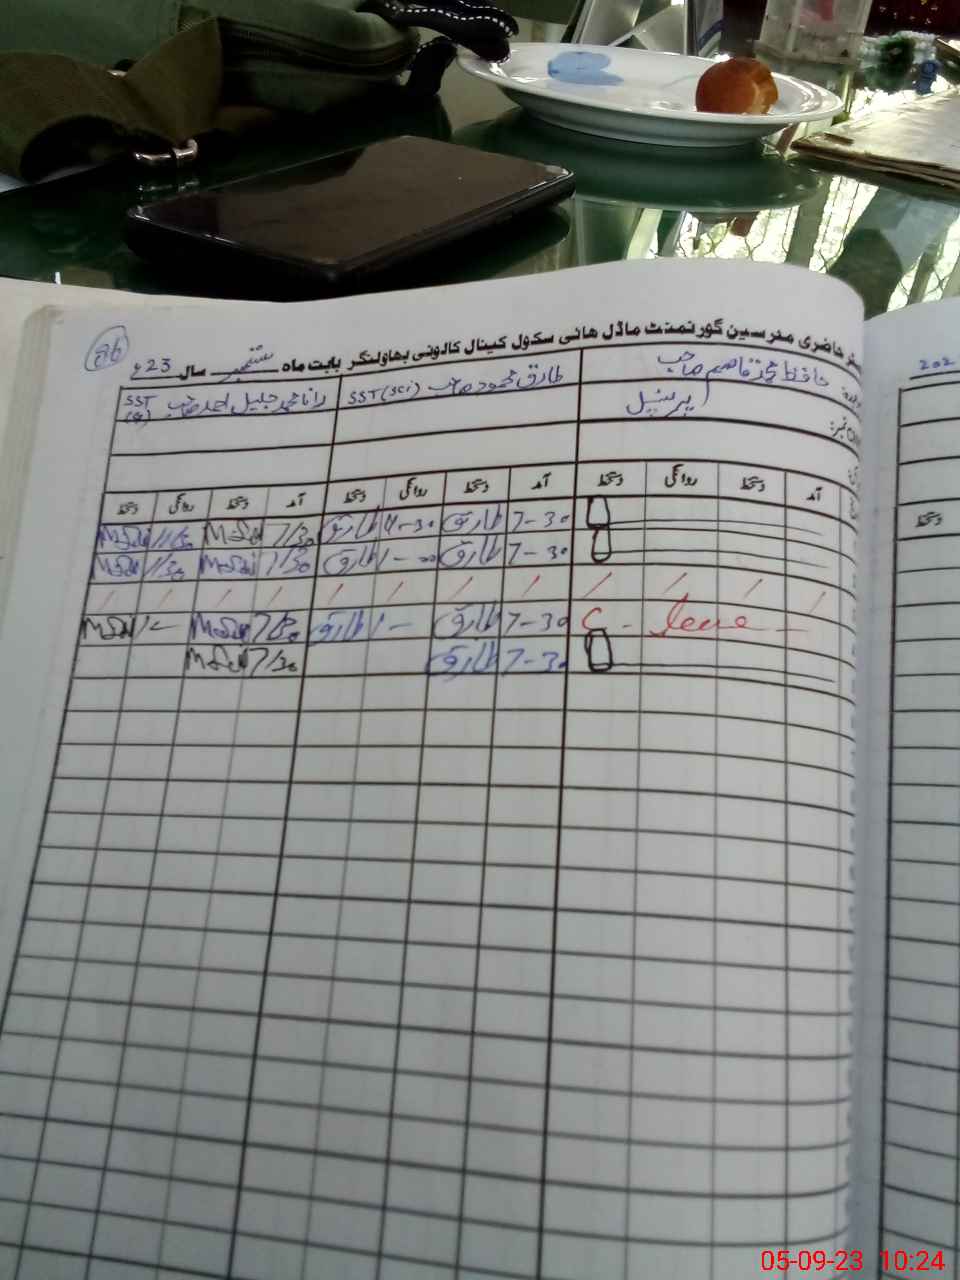 86
رجسٹر حاضری مدرسین گورنمنٹ ماڈل ہائی سکول کینال کالونی بہاولنگر بابت ماہ ستمبر سال 23ء
حافظ محمد قاسم صاحب طارق محمود صاحب SST (Sci) رانا محمد جلیل احمد صاحب SST
پرنسپل
نمبر:
آمد دستخط روانگی دستخط آمد دستخط روانگی دستخط آمد دستخط روانگی دستخط
7-30 طارق طارق 7/30
7-30 طارق 1-00 طارق 7/30 1/30
C. Leave 7-30 طارق 1- طارق 7/30 1-
7-30 طارق 7/30
202
دستخط
05-09-23 10:24